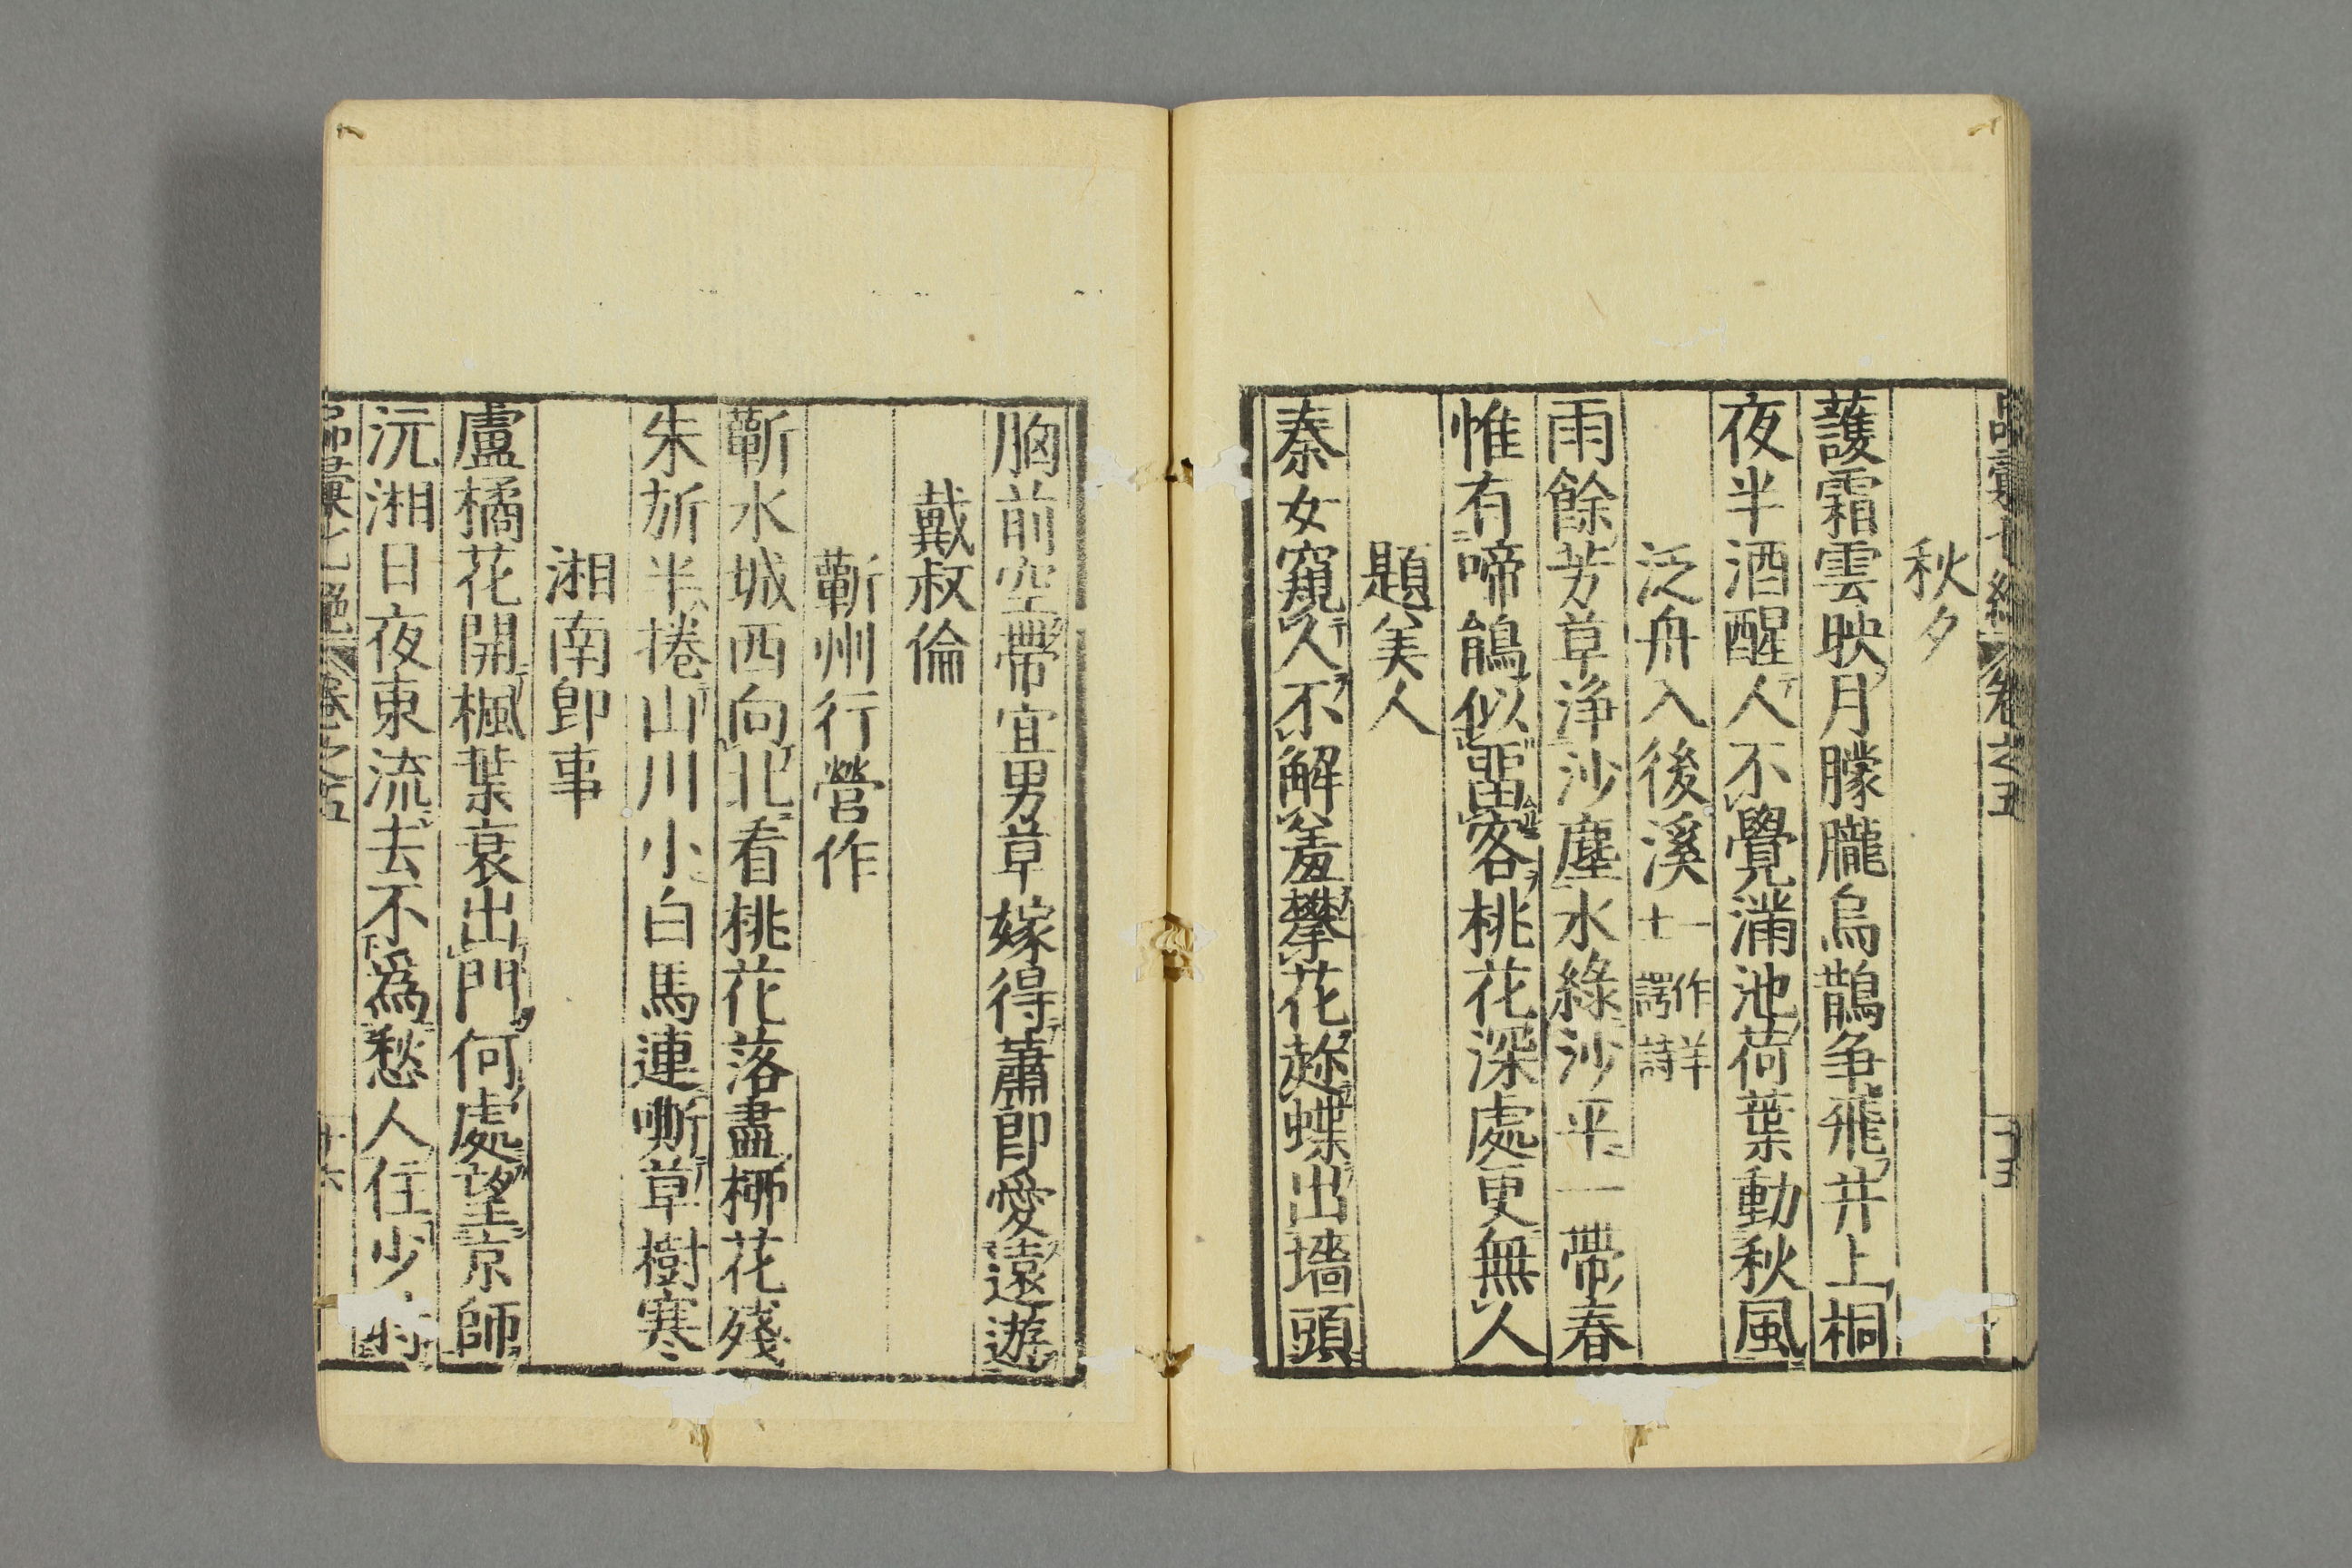 品彙七絶 卷之五 十五
秋夕
護霜雲映月朦朧烏鵲争飛井上桐
夜半酒醒人不覺滿池荷葉動秋風
泛舟入後溪一作羊士諤詩
雨餘芳草浄沙塵水綠沙平一帶春
惟有啼鵑似畱客桃花深處更無人
題美人
秦女窺人不解羞攀花趂蝶出墻頭
胸前空帶宜男草嫁得蕭郎愛遠遊
戴叔倫
蘄州行營作
蘄水城西向北看桃花落盡栁花殘
朱旂半捲山川小白馬連嘶草樹寒
湘南即事
盧橘花開楓葉衰出門何處望京師
沅湘日夜東流去不為愁人住少時
品彙七絶 卷之五 十六